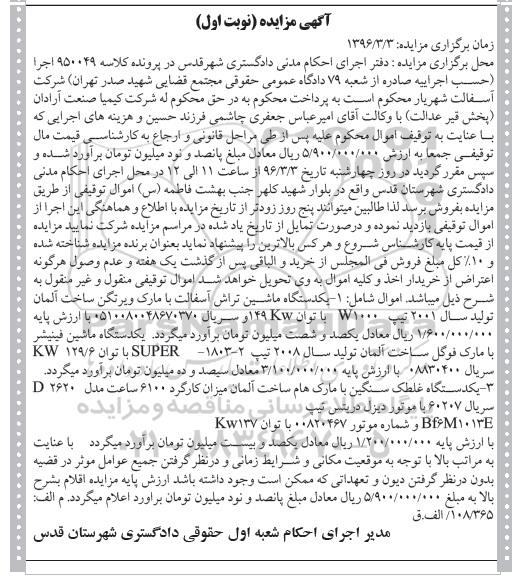 آگهی مزایده (نوبت اول)
زمان برگزاری مزایده: ۱۳۹۶/۳/۳
محل برگزاری مزایده : دفتر اجرای احکام مدنی دادگستری شهرقدس در پرونده کلاسه ۹۵۰۰۴۹ اجرا
(حسب اجراییه صادره از شعبه ۷۹ دادگاه عمومی حقوقی مجتمع قضایی شهید صدر تهران) شرکت
آسفالت شهریار محکوم است به پرداخت محکوم به در حق محکوم له شرکت کیمیا صنعت آرادان
(پخش قیر عدالت) با وکالت آقای امیرعباس جعفری چاشمی فرزند حسین و هزینه های اجرایی که
با عنایت به توقیف اموال محکوم علیه پس از طی مراحل قانونی و ارجاع به کارشناسی قیمت مال
توقیفی جمعا به ارزش ۵/۹۰۰/۰۰۰/۰۰۰ ریال معادل مبلغ پانصد و نود میلیون تومان برآورد شده و
سپس مقرر گردید در روز چهارشنبه تاریخ ۹۶/۳/۳ از ساعت ۱۱ الی ۱۲ در محل اجرای احکام مدنی
دادگستری شهرستان قدس واقع در بلوار شهید کلهر جنب بهشت فاطمه (س) اموال توقیفی از طریق
مزایده بفروش برسد لذا طالبین میتوانند پنج روز زودتر از تاریخ مزایده با اطلاع و هماهنگی این اجرا از
اموال توقیفی بازدید نموده و درصورت تمایل از تاریخ یاد شده در مراسم مزایده شرکت نمایید مزایده
از قیمت پایه کارشناس شروع و هر کس بالاترین را پیشنهاد نماید بعنوان برنده مزایده شناخته شده
و ۱۰٪ کل مبلغ فروش فی المجلس از خرید و الباقی پس از گذشت یک هفته و عدم وصول هرگونه
اعتراض از خریدار اخذ و کلیه اموال به وی تحویل خواهد شد اموال توقیفی منقول و غیر منقول به
شرح ذیل میباشد. اموال شامل: ۱-یکدستگاه ماشین تراش آسفالت با مارک ویرتگن ساخت آلمان
تولید سال ۲۰۰۱ تیپ W۱۰۰۰ با توان ۱۴۹Kw و سریال ۰۵۱۰۰۸۰۰۴۸۶۷۰۳۷۰ با ارزش پایه
۱/۶۰۰/۰۰۰/۰۰۰ ریال معادل یکصد و شصت میلیون تومان برآورد میگردد. یکدستگاه ماشین فینیشر
با مارک فوگل ساخت آلمان تولید سال ۲۰۰۸ تیپ ۲-۱۸۰۳- SUPER با توان ۱۲۹/۶ KW
سریال ۰۸۸۳۰۴۰۰ با ارزش پایه ۳/۱۰۰/۰۰۰/۰۰۰ معادل سیصد و ده میلیون تومان برآورد میگردد.
۳-یکدستگاه غلطک سنگین با مارک هام ساخت آلمان میزان کارکرد ۶۱۰۰ ساعت مدل ۲۶۲۰ D
سریال ۶۰۲۰۷ با موتور دیزل دریتس تیپ
Bf۶M۱۰۱۳E و شماره موتور ۰۰۸۲۰۴۶۷ با توان Kw۱۳۷
با ارزش پایه ۱/۲۰۰/۰۰۰/۰۰۰ ریال معادل یکصد و بیست میلیون تومان برآورد میگردد با عنایت
به مراتب بالا با توجه به موقعیت مکانی و شرایط زمانی و درنظر گرفتن جمیع عوامل موثر در قضیه
بدون درنظر گرفتن دیون و تعهداتی که ممکن است وجود داشته باشد ارزش پایه مزایده اقلام بشرح
بالا به مبلغ ۵/۹۰۰/۰۰۰/۰۰۰ ریال معادل مبلغ پانصد و نود میلیون تومان براورد اعلام میگردد. م الف:
۱۰۸/۳۶۵/ الف.ق
مدیر اجرای احکام شعبه اول حقوقی دادگستری شهرستان قدس